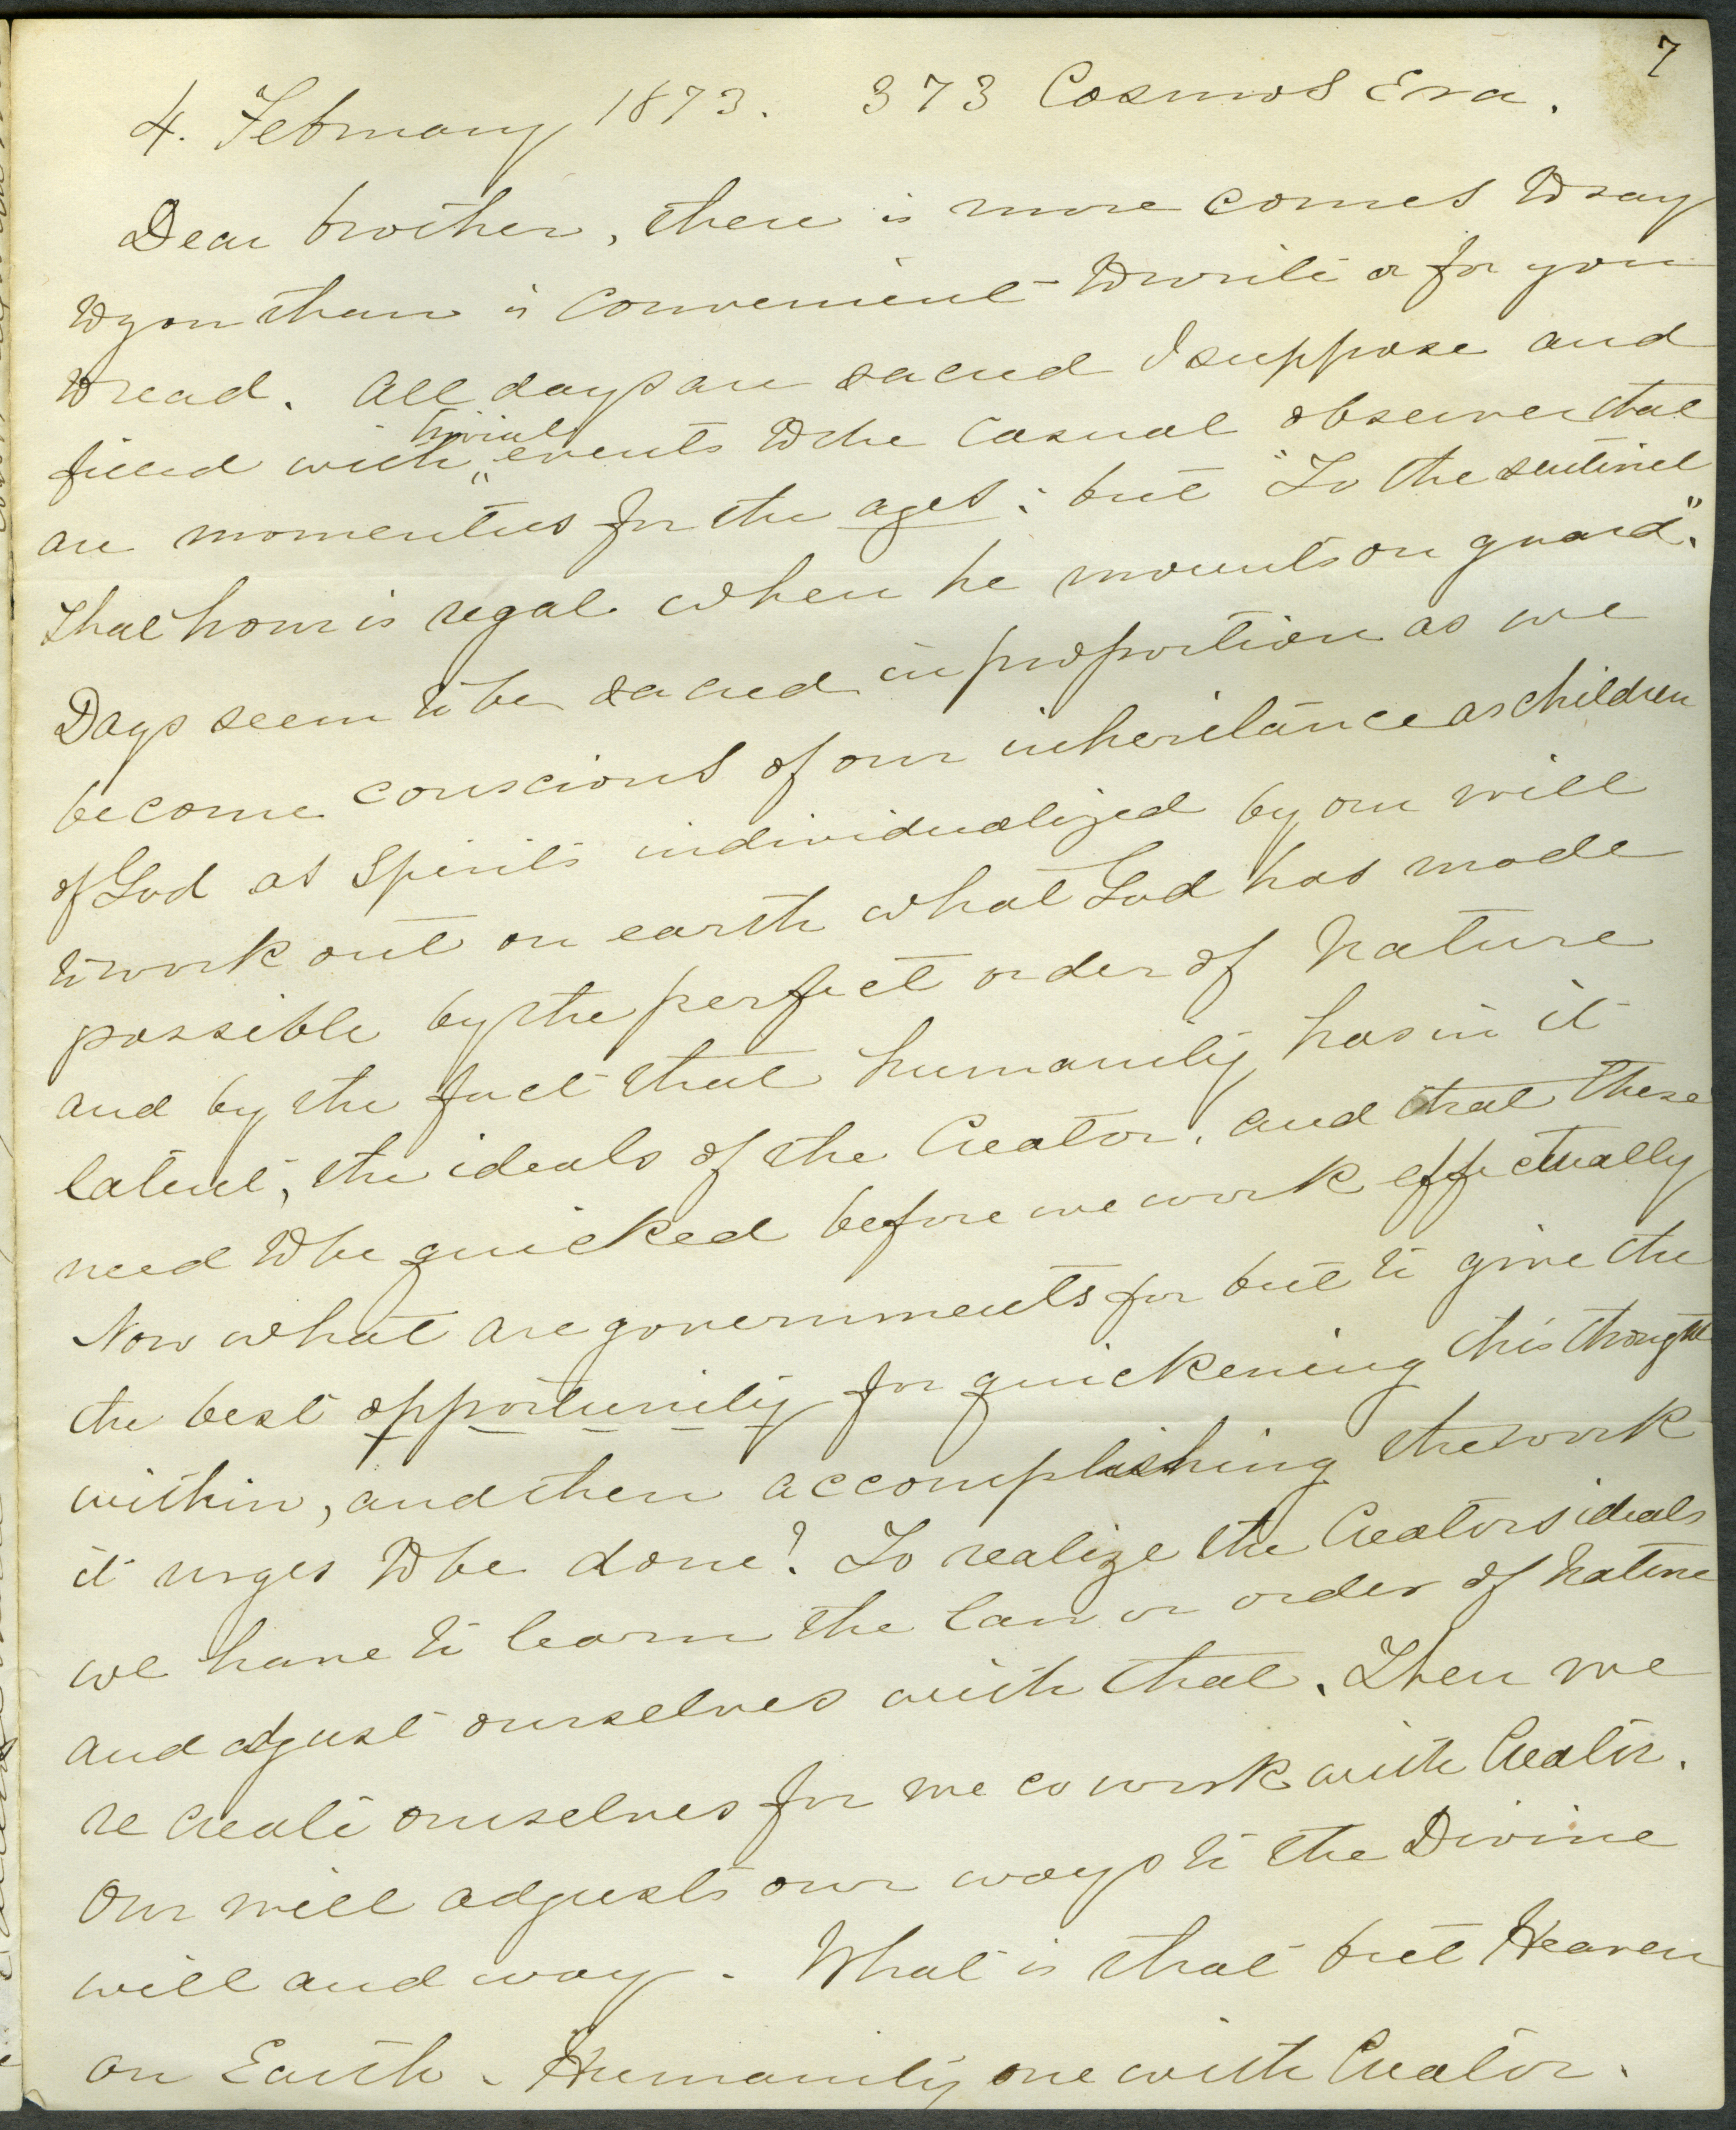 7
4. February 1873. 373 Cosmos Era.
Dear brother, there is more comes to say
to you than is convenient to write or for you
to read. All days are sacred I suppose and
trivial
filled with events to the casual observer that
are momentus for the ages: but "To the sentinel
that hour is regal when he mounts on guard".
Days seem to be sacred in proportion as we
become conscious of our inheritance as children
of God as Spirits individualized by our will
to work out on earth what God has made
possible by the perfect order of Nature
and by the fact that humanity has in it
latent, the ideals of the Creator, and that these
need to be quicked before we work effectually
Now what are governments for but to give the
the best opportunity for quickening this thought
within, and then accomplishing the work
it urges to be done! To realize the Creators ideals
we have to learn the law or order of Nature
and adjust ourselves with that. Then we
re create ourselves for we co work with Creator.
Our will adjusts our ways to the Divine
will and way. What is that but Heaven
on Earth - Humanity one with Creator.